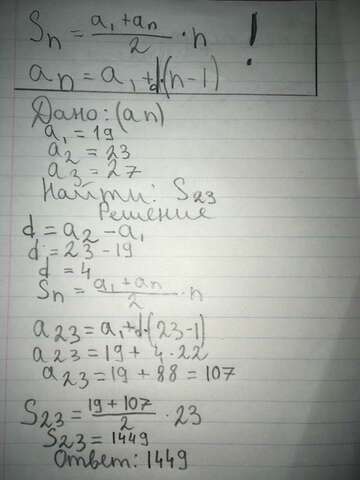 Sn = (a₁ + an)/2 · n !
an = a₁ + d·(n-1)
Дано: (an)
a₁ = 19
a₂ = 23
a₃ = 27
Найти: S₂₃
Решение
d = a₂ - a₁
d = 23 - 19
d = 4
Sn = (a₁ + an)/2 · n
a₂₃ = a₁ + d·(23-1)
a₂₃ = 19 + 4·22
a₂₃ = 19 + 88 = 107
S₂₃ = (19 + 107)/2 · 23
S₂₃ = 1449
Ответ: 1449